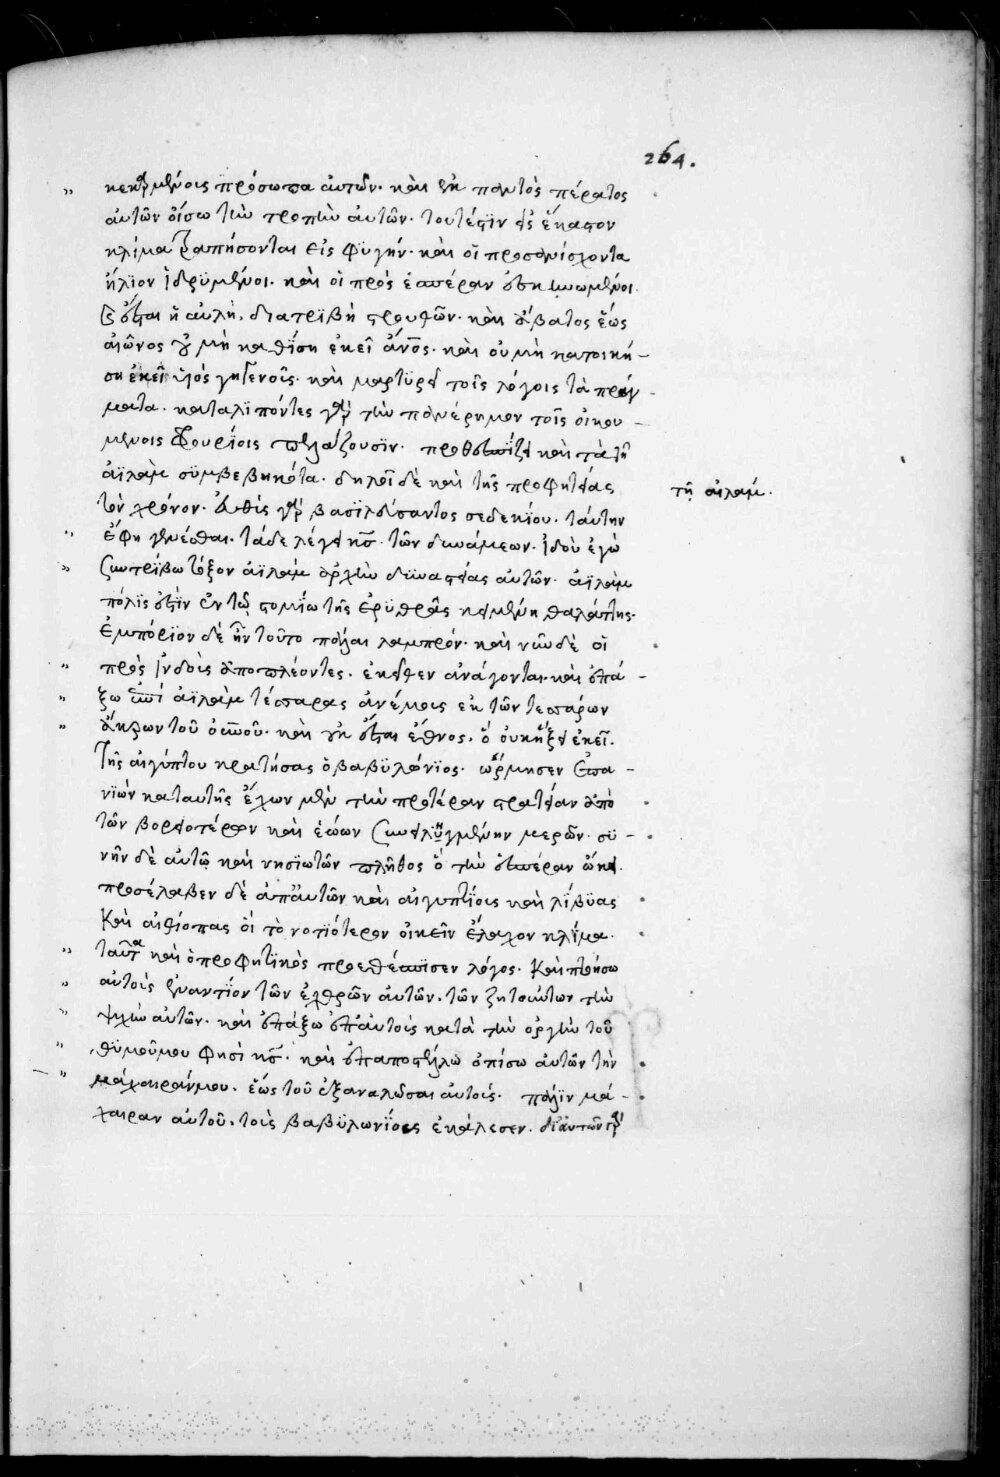 264.
κεκαρμένοις πρόσωπα αὐτῶν. καὶ ἐκ παντὸς πέρατος
αὐτῶν οἴσω τὴν τροπὴν αὐτῶν. τουτέστιν εἰς ἕκαστον
κλίμα τραπήσονται εἰς φυγήν. καὶ οἱ προσανίσχοντα
ἥλιον ἱδρυμένοι. καὶ οἱ πρὸς ἑσπέραν ἐσκηνωμένοι.
ἔσται ἡ αὐλὴ. διατριβὴ στρουθῶν. καὶ ἄβατος ἕως
αἰῶνος οὐ μὴ καθίση ἐκεῖ ἄνος. καὶ οὐ μὴ κατοική-
ση ἐκεῖ υἱὸς γηγενοῦς. καὶ μαρτυρεῖ τοῖς λόγοις τὰ πράγ-
ματα. καταλιπόντες γὰρ τὴν πανέρημον τοῖς οἰκου-
μένοις φρουρίοις πελάζουσιν. προθεσπίζει καὶ τὰ τῆ
αἰλὰμ συμβεβηκότα. δηλοῖ δὲ καὶ τῆς προφητείας
τῆ αἰλαμ.
τὸν χρόνον. εὐθὺς γὰρ βασιλεύσαντος σεδεκίου. ταύτην
ἔφη γενέσθαι. τάδε λέγει κς τῶν δυνάμεων. ἰδοὺ ἐγὼ
συντρίβω τόξον αἰλὰμ ἀρχὴν δυναστείας αὐτῶν. αἰλὰμ
πόλις ἐστὶν ἐν τῷ στομίω τῆς ἐρυθρᾶς κειμένη θαλάττης.
ἐμπόριον δὲ ἦν τοῦτο πάλαι λαμπρόν. καὶ νῦν δὲ οἱ
πρὸς ἰνδοὺς ἀποπλέοντες. ἐκεῖθεν ἀνάγονται. καὶ ἐπά-
ξω ἐπὶ αἰλὰμ τέσσαρας ἀνέμους ἐκ τῶν τεσσάρων
ἄκρων τοῦ οὐνοῦ. καὶ οὐκ ἔσται ἔθνος. ὃ οὐκ ἥξει ἐκεῖ.
τῆς αἰγύπτου κρατήσας ὁ βαβυλώνιος. ὥρμησεν ἐπα-
νιὼν κατ αὐτῆς ἔχων μὲν τὴν προτέραν στρατείαν ἀπὸ
τῶν βορειοτέρων καὶ ἑώων συνειλεγμένην μερῶν. συ-
νῆν δὲ αὐτῷ καὶ νησιωτῶν πλῆθος ὃ τὴν ἑσπέραν ὤκει.
προσέλαβεν δὲ ἀπ αὐτῶν καὶ αἰγυπτίους καὶ λίβυας
καὶ αἰθίοπας οἳ τὸ νοτιότερον οἰκεῖν ἔλαχον κλίμα.
ταῦτα καὶ ὁ προφητικὸς προεθέσπισεν λόγος. καὶ πτοήσω
αὐτοὺς ἐναντίον τῶν ἐχθρῶν αὐτῶν. τῶν ζητούντων τὴν
ψυχὴν αὐτῶν. καὶ ἐπάξω ἐπ αὐτοὺς κατὰ τὴν ὀργὴν τοῦ
θυμοῦ μου φησὶ κς. καὶ ἐπαποστελῶ ὀπίσω αὐτῶν τὴν
μάχαιράν μου. ἕως τοῦ ἐξαναλῶσαι αὐτούς. πάλιν μά-
χαιραν αὐτοῦ. τοὺς βαβυλωνίους ἐκάλεσεν. δι αὐτῶν γὰρ